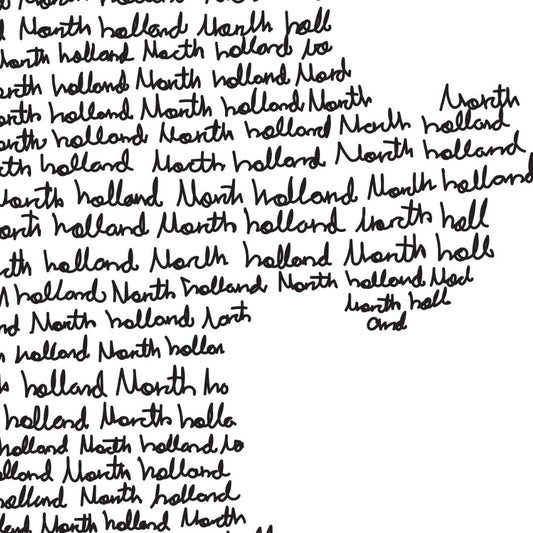 North holl
North holland North holland
North holland North holland
North holland North holland North
North
North holland North holland North holland
holland North holland North holland
North holland North holland North holland
North holland North holland North holl
holland North holland North holl
holland North holland North holland
North holl
and
North holland
holland North hollan
holland North ho
holland North holla
holland North holland
holland North holland
holland North holland
North holland North